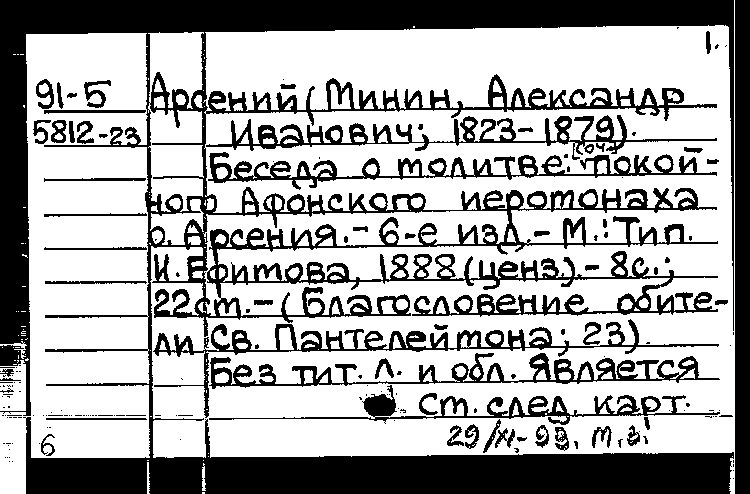 1.
91-5 Арсений (Минин, Александр
5812-23 Иванович; 1823-1879).
Беседа о молитве: [соч.] покой-
ного Афонского иеромонаха
о. Арсения. - 6-е изд. - М.: Тип.
И. Ефимова, 1888 (ценз.). - 8с.;
22см. - (Благословение обите-
ли Св. Пантелеймона; 23).
Без тит. л. и обл. Является
См. след. карт.
6 29/XI-99. М.З.